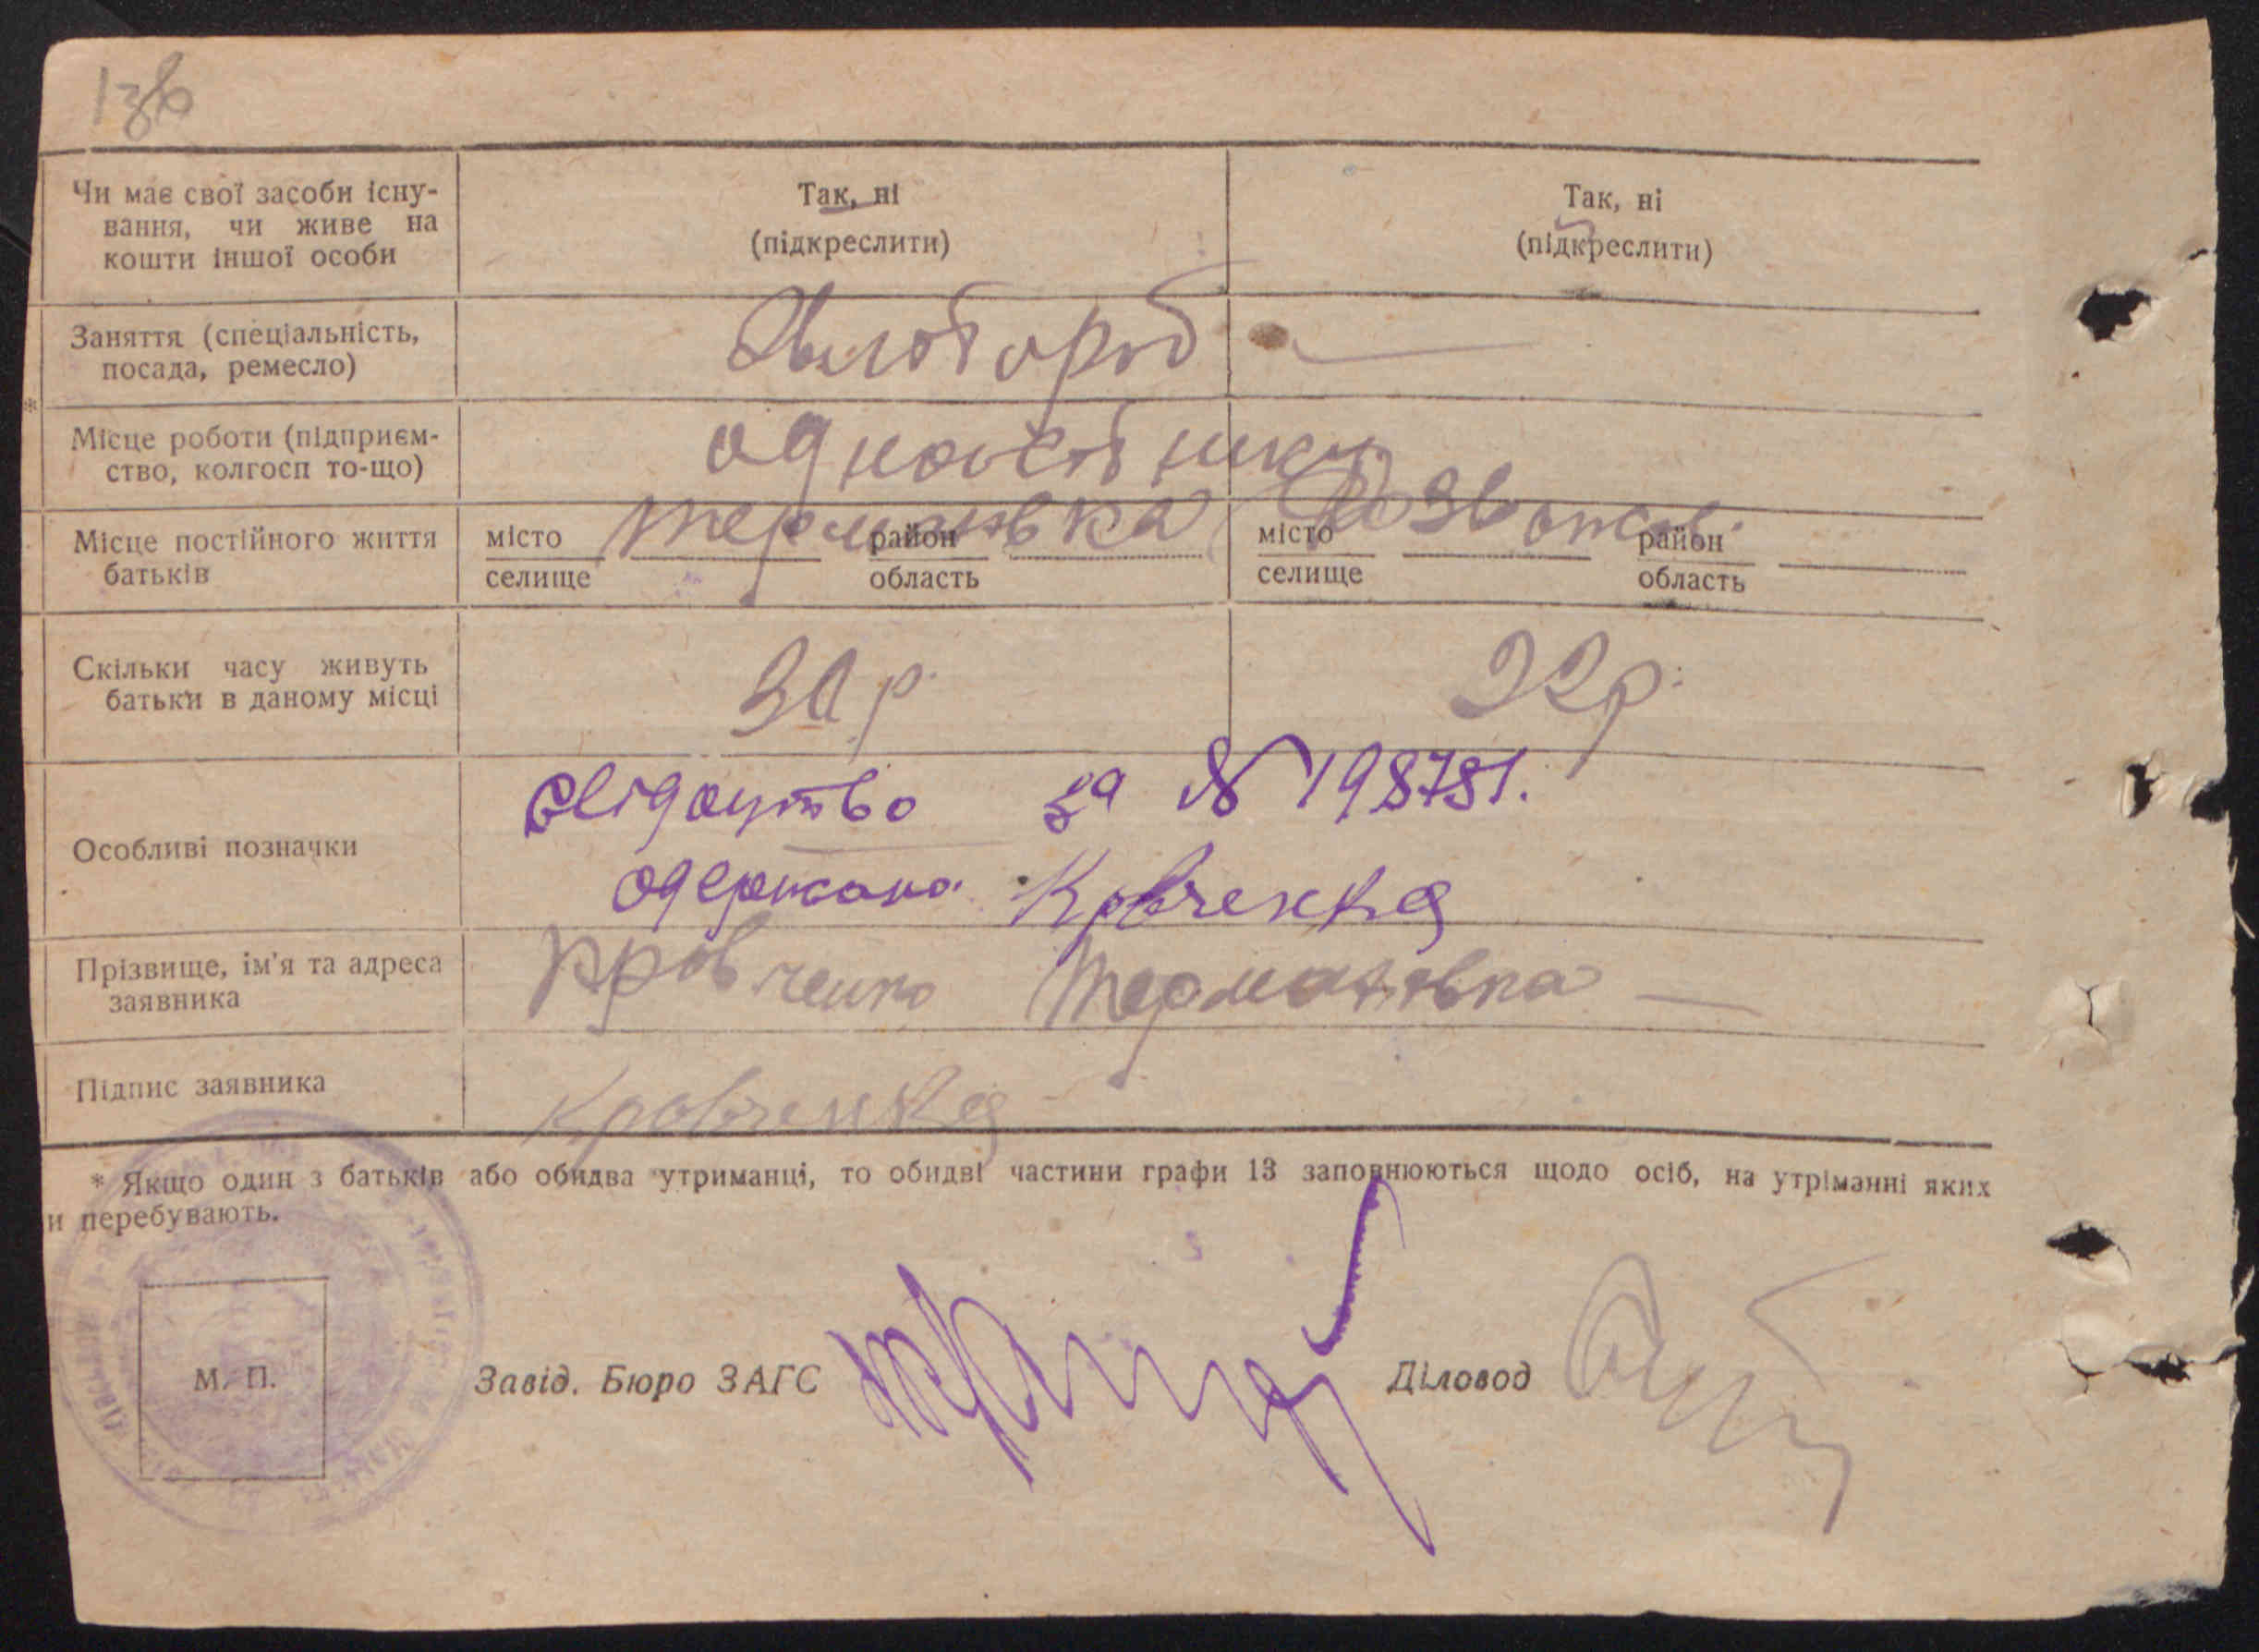 13б
Чи має свої засоби існу-
вання, чи живе на
кошти іншої особи
Так, ні
(підкреслити)
Так, ні
(підкреслити)
Заняття (спеціальність,
посада, ремесло)
Хлібороб
Місце роботи (підприєм-
ство, колгосп то-що)
Місце постійного життя
батьків
місто
селище
Термаховка
район
область
місто
селище
район
область
Скільки часу живуть
батьки в даному місці
30 р.
22 р.
Особливі позначки
свідоцтво за № 198781.
одержано Кравченко
Прізвище, ім'я та адреса
заявника
Кравченко Термаховка
Підпис заявника
Кравченко
* Якщо один з батьків або обидва утриманці, то обидві частини графи 13 заповнюються щодо осіб, на утріманні яких
и перебувають.
М. П.
Завід. Бюро ЗАГС
Діловод